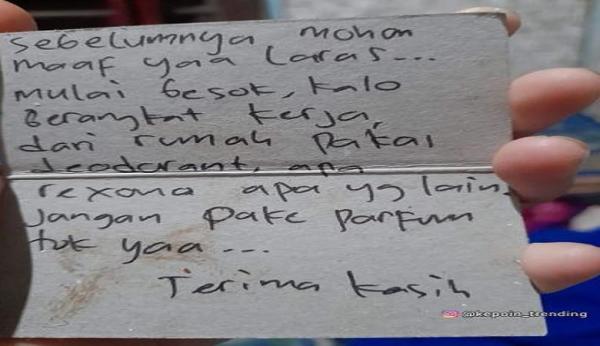 sebelumnya mohon
maaf yaa Laras...
mulai besok, kalo
Berangkat kerja,
dari rumah pakai
deodorant, apa
rexona apa yg lain,
jangan pake parfum
tok yaa ...
Terima kasih
@kepoin_trending